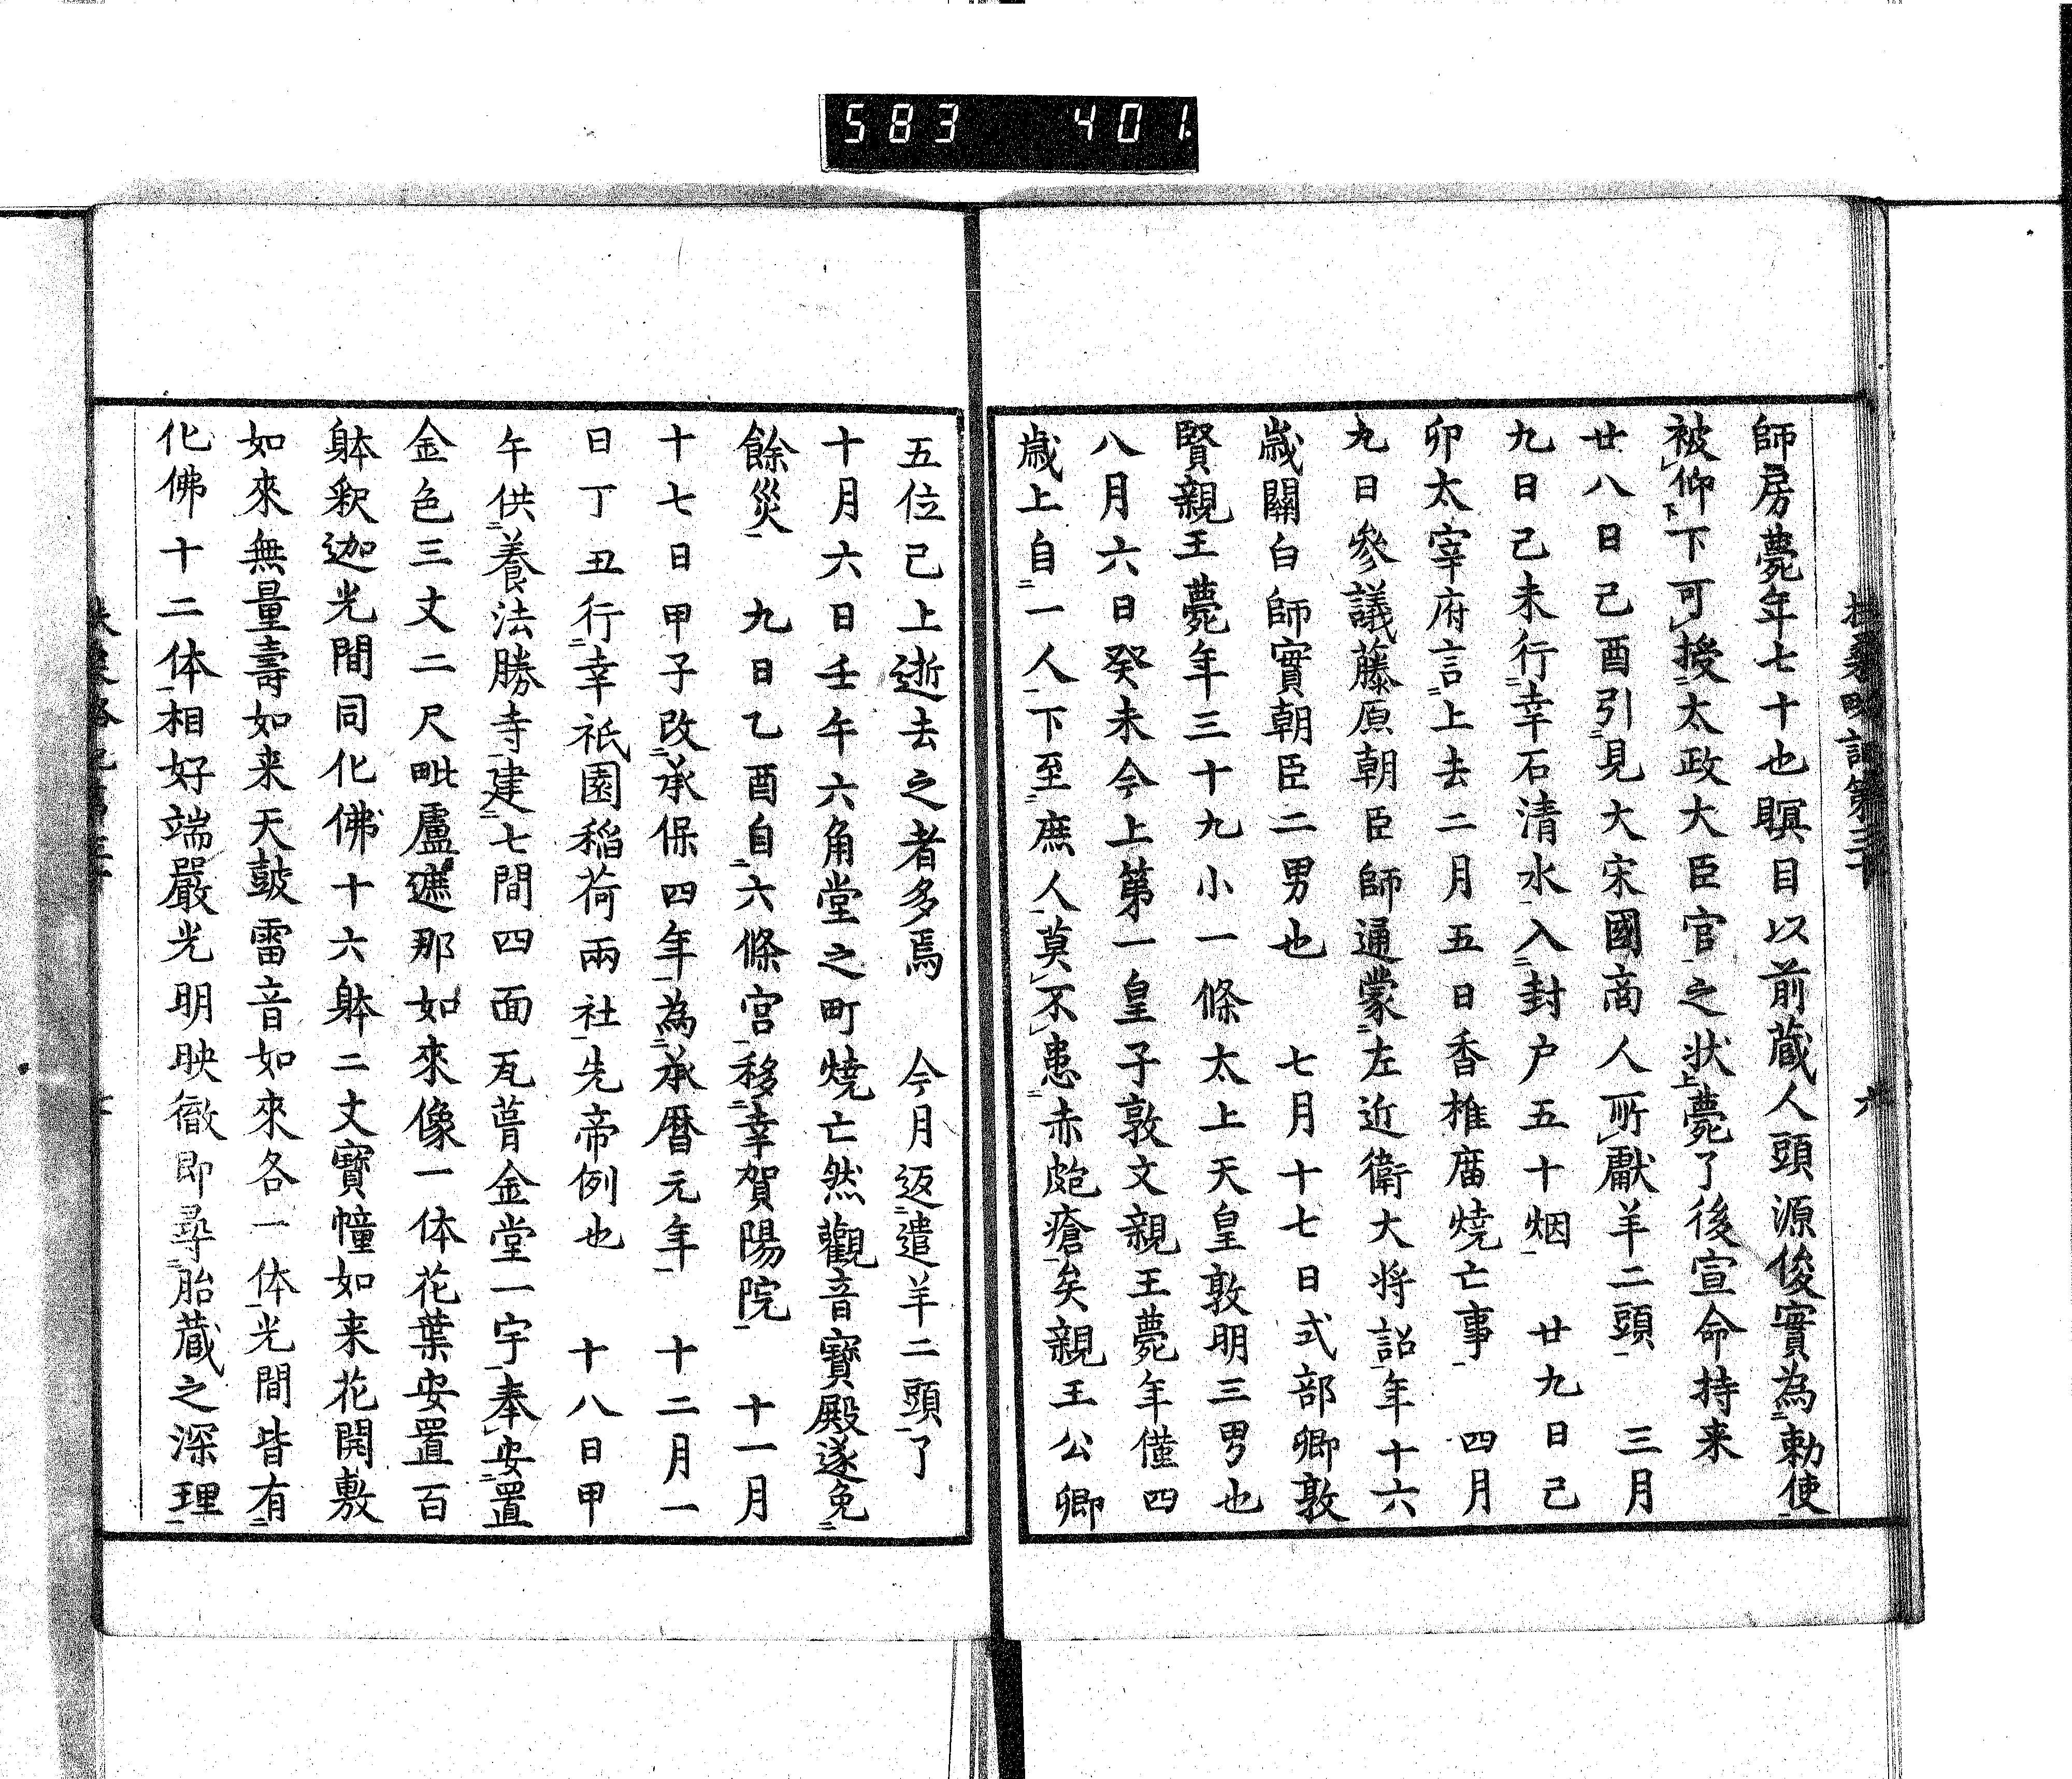 583 401.
師房薨年七十也瞑目以前蔵人頭源俊實為勅使
被仰下可授太政大臣官之状薨了後宣命持来
廿八日己酉引見大宋國商人所獻羊二頭 三月
九日己未行幸石清水入封户五十烟 廿九日己
卯太宰府言上去二月五日香椎庿燒亡事 四月
九日參議藤原朝臣師通蒙左近衛大将詔年十六
歳關白師實朝臣二男也 七月十七日式部卿敦
賢親王薨年三十九小一條太上天皇敦明三男也
八月六日癸未今上第一皇子敦文親王薨年僅四
歳上自一人下至庶人莫不患赤皰瘡矣親王公卿
五位已上逝去之者多焉 今月返遣羊二頭了
十月六日壬午六角堂之町燒亡然觀音寶殿遂免
餘災 九日乙酉自六條宮移幸賀陽院 十一月
十七日甲子改承保四年為承曆元年 十二月一
日丁丑行幸祇園稲荷兩社先帝例也 十八日甲
午供養法勝寺建七間四面瓦葺金堂一宇奉安置
金色三丈二尺毗盧遮那如來像一体花葉安置百
躰釈迦光間同化佛十六躰二丈寶幢如来花開敷
如來無量壽如来天鼓雷音如來各一体光間皆有
化佛十二体相好端嚴光明映徹即尋胎蔵之深理